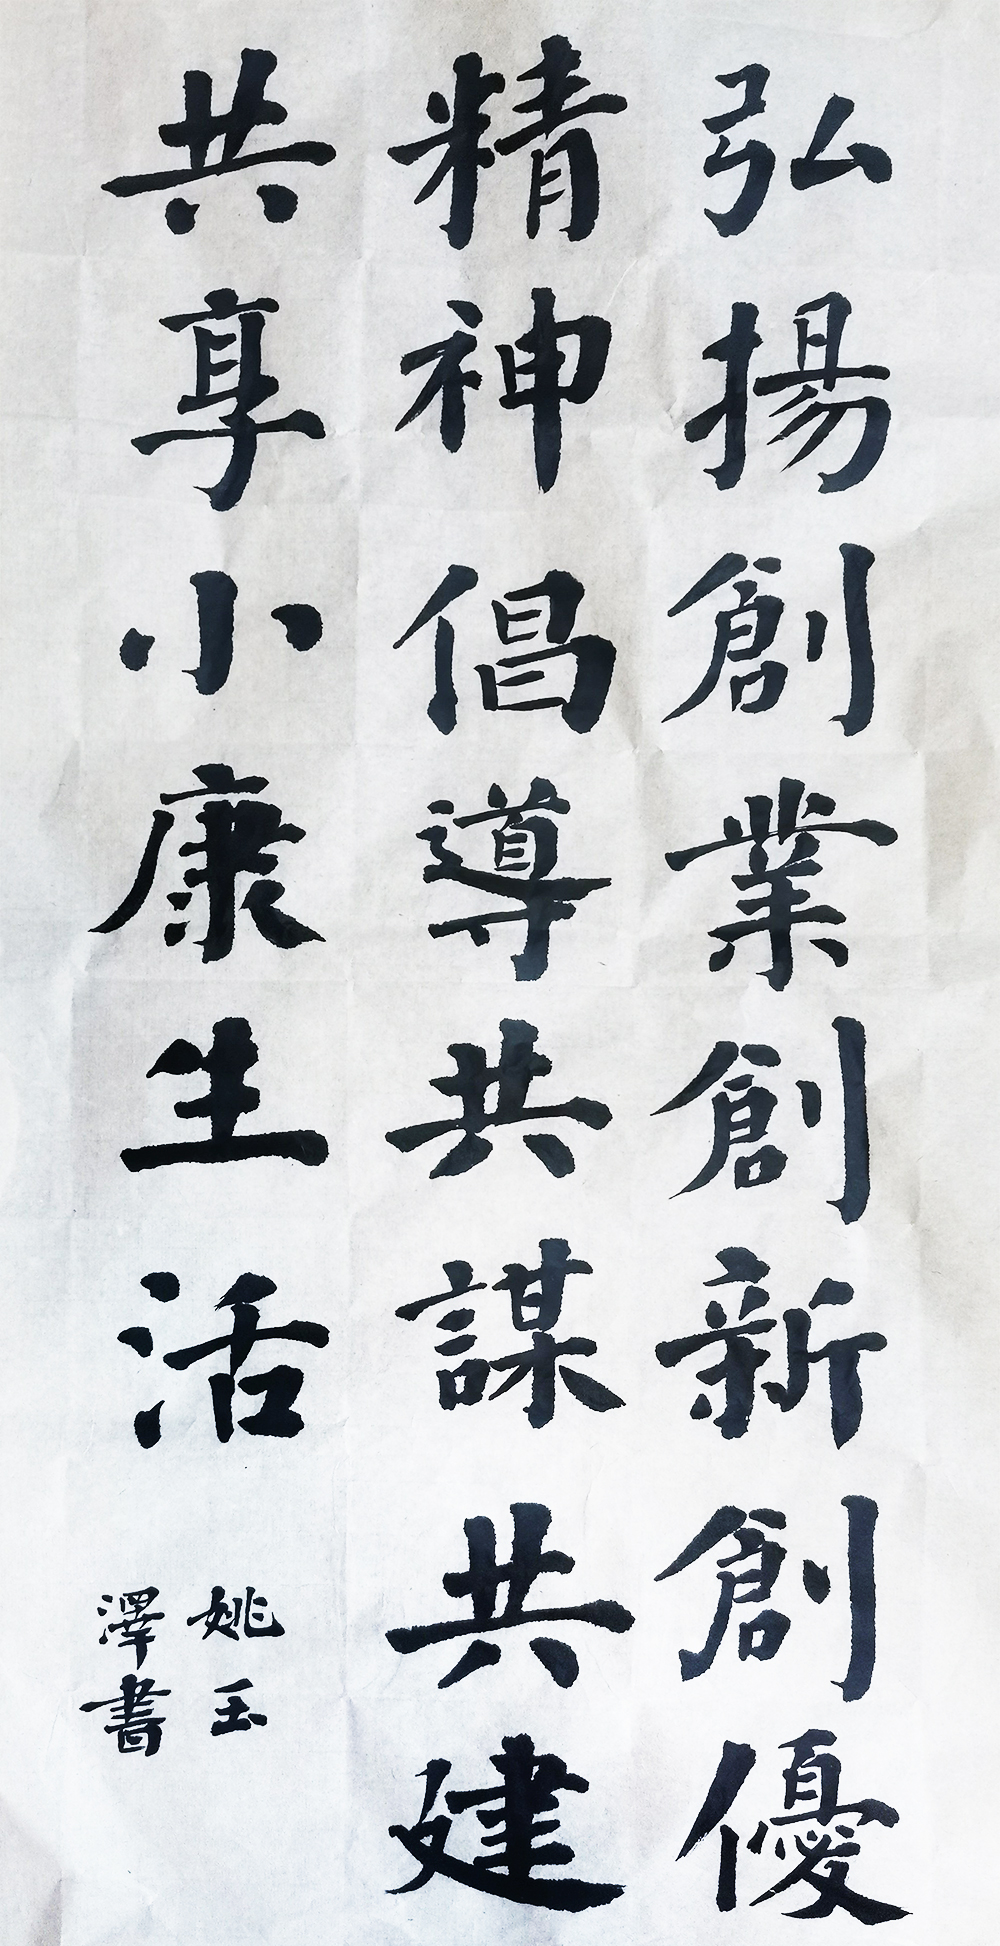 弘揚創業創新創優
精神倡導共謀共建
共享小康生活
姚玉
澤書